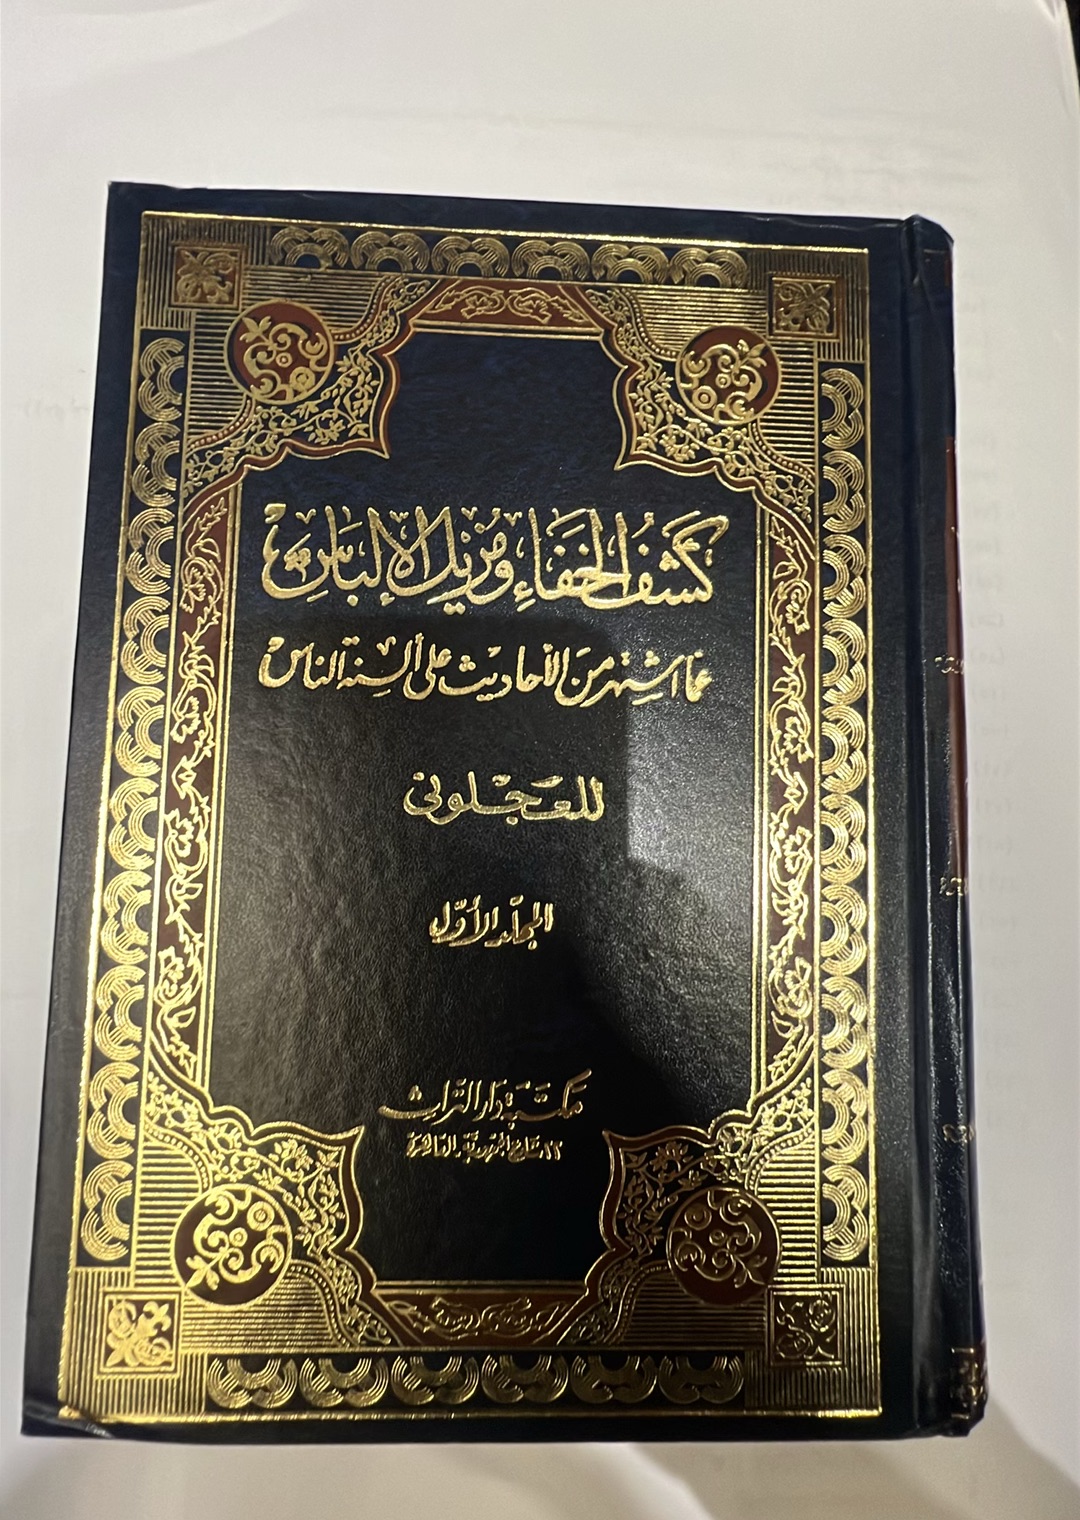 كَشَفُ الخَفَاءِ وَمُزيْل الإلبَاسِ
عمّا اشتهر منَ الأحاديث على ألسِنة الناس
للعَجْلونى
المجلّد الأوّل
مكتَبة دَار التّراث
٢٢ شارع الجمهوريّة ـ القاهرة